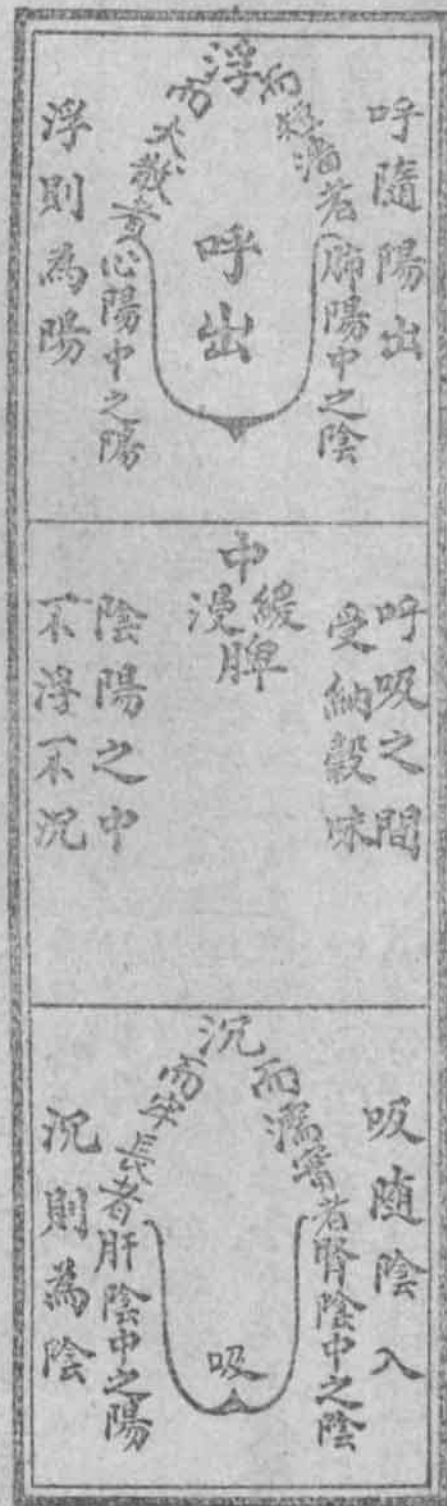 呼隨陽出
浮而短濇者肺陽中之陰
呼出
浮而大散者心陽中之陽
浮則為陽
呼吸之間
受納穀味
中
緩
漫
脾
陰陽之中
不浮不沉
吸隨陰入
沉而濡實者腎陰中之陰
吸
沉而牢長者肝陰中之陽
沉則為陰